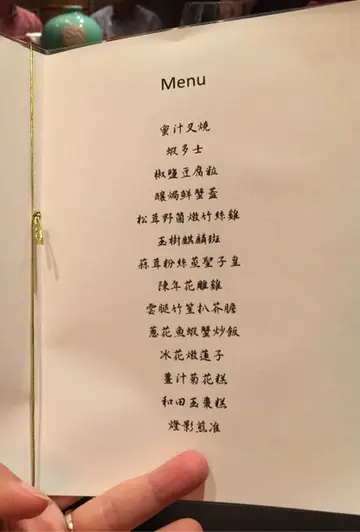 Menu
蜜汁叉燒
蝦多士
椒鹽豆腐粒
釀焗鮮蟹蓋
松茸野菌燉竹絲雞
玉樹麒麟斑
蒜茸粉絲蒸聖子皇
陳年花雕雞
雲腿竹笙扒芥膽
蔥花魚蝦蟹炒飯
冰花燉蓮子
薑汁菊花糕
和田玉棗糕
燈影煎准